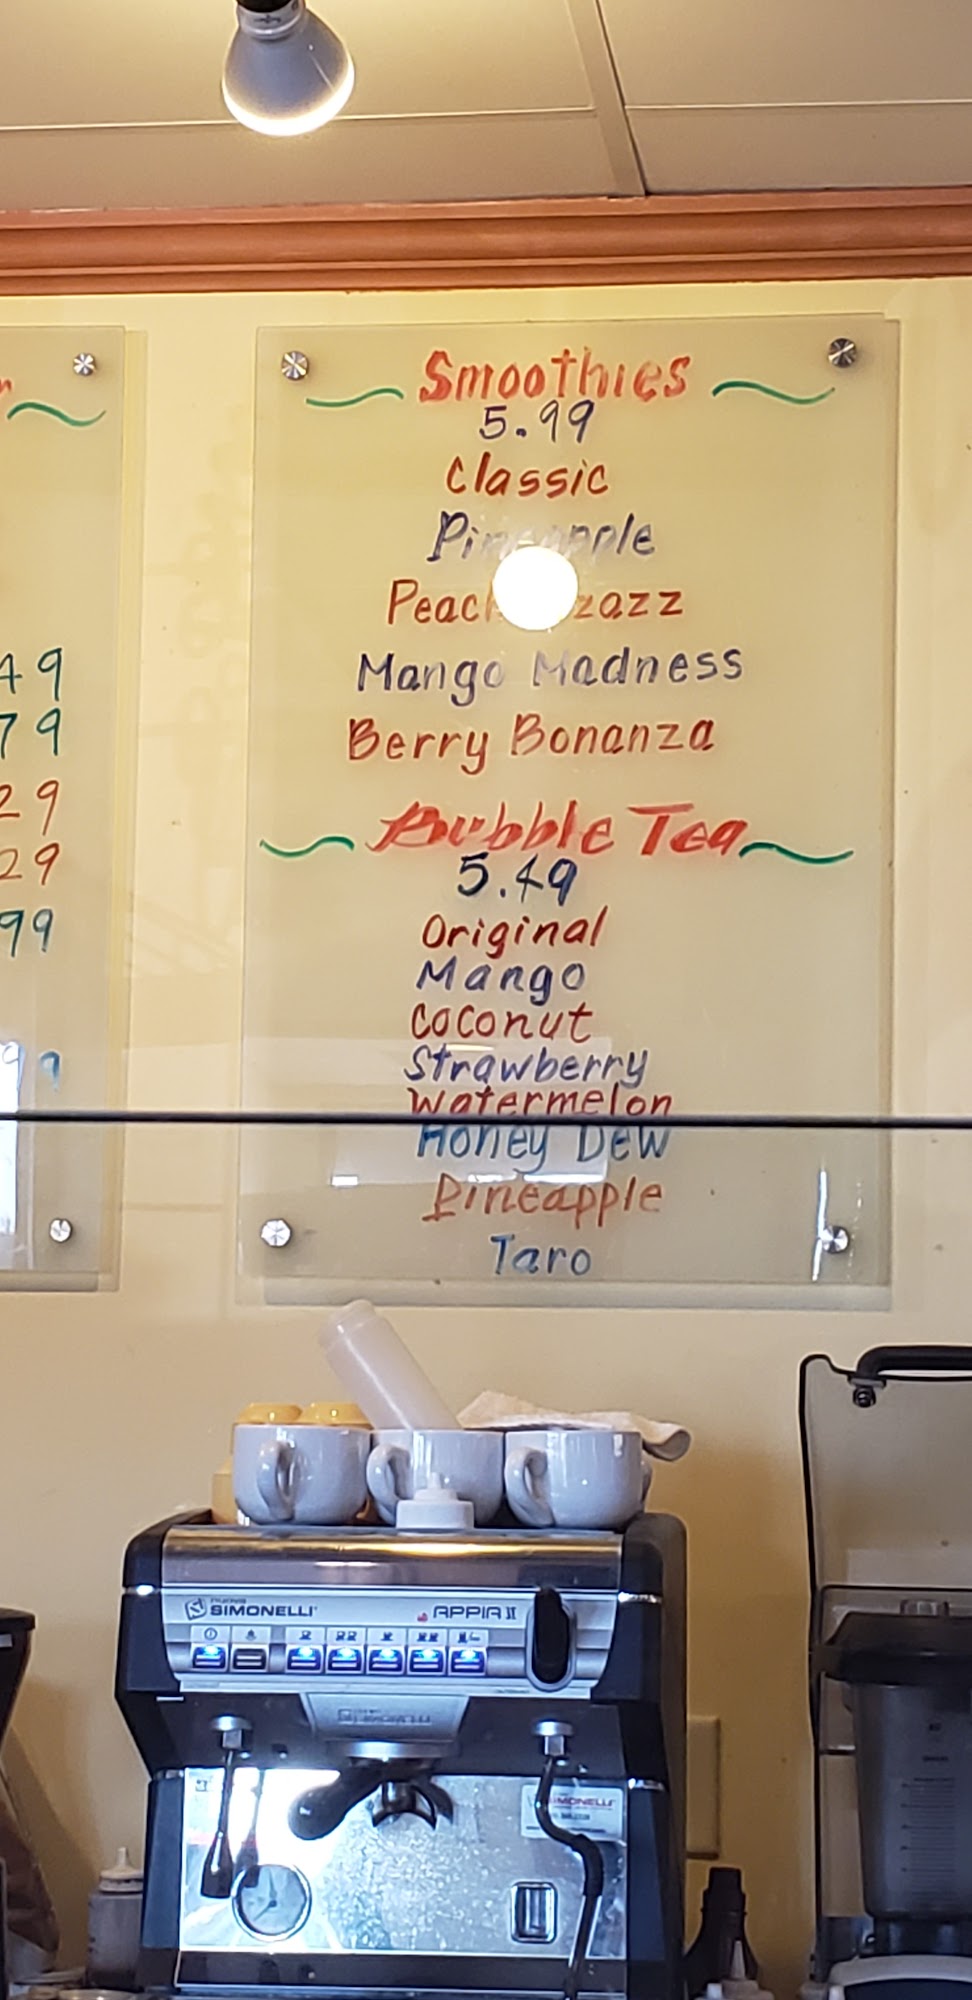 Smoothies
5.99
Classic
Pineapple
Mango Madness
Berry Bonanza
Bubble Tea
5.49
Original
Mango
Coconut
Strawberry
Watermelon
Honey Dew
Pineapple
Taro
49
79
29
29
99
nuova
SIMONELLI
APPIA II
SIMONELLI